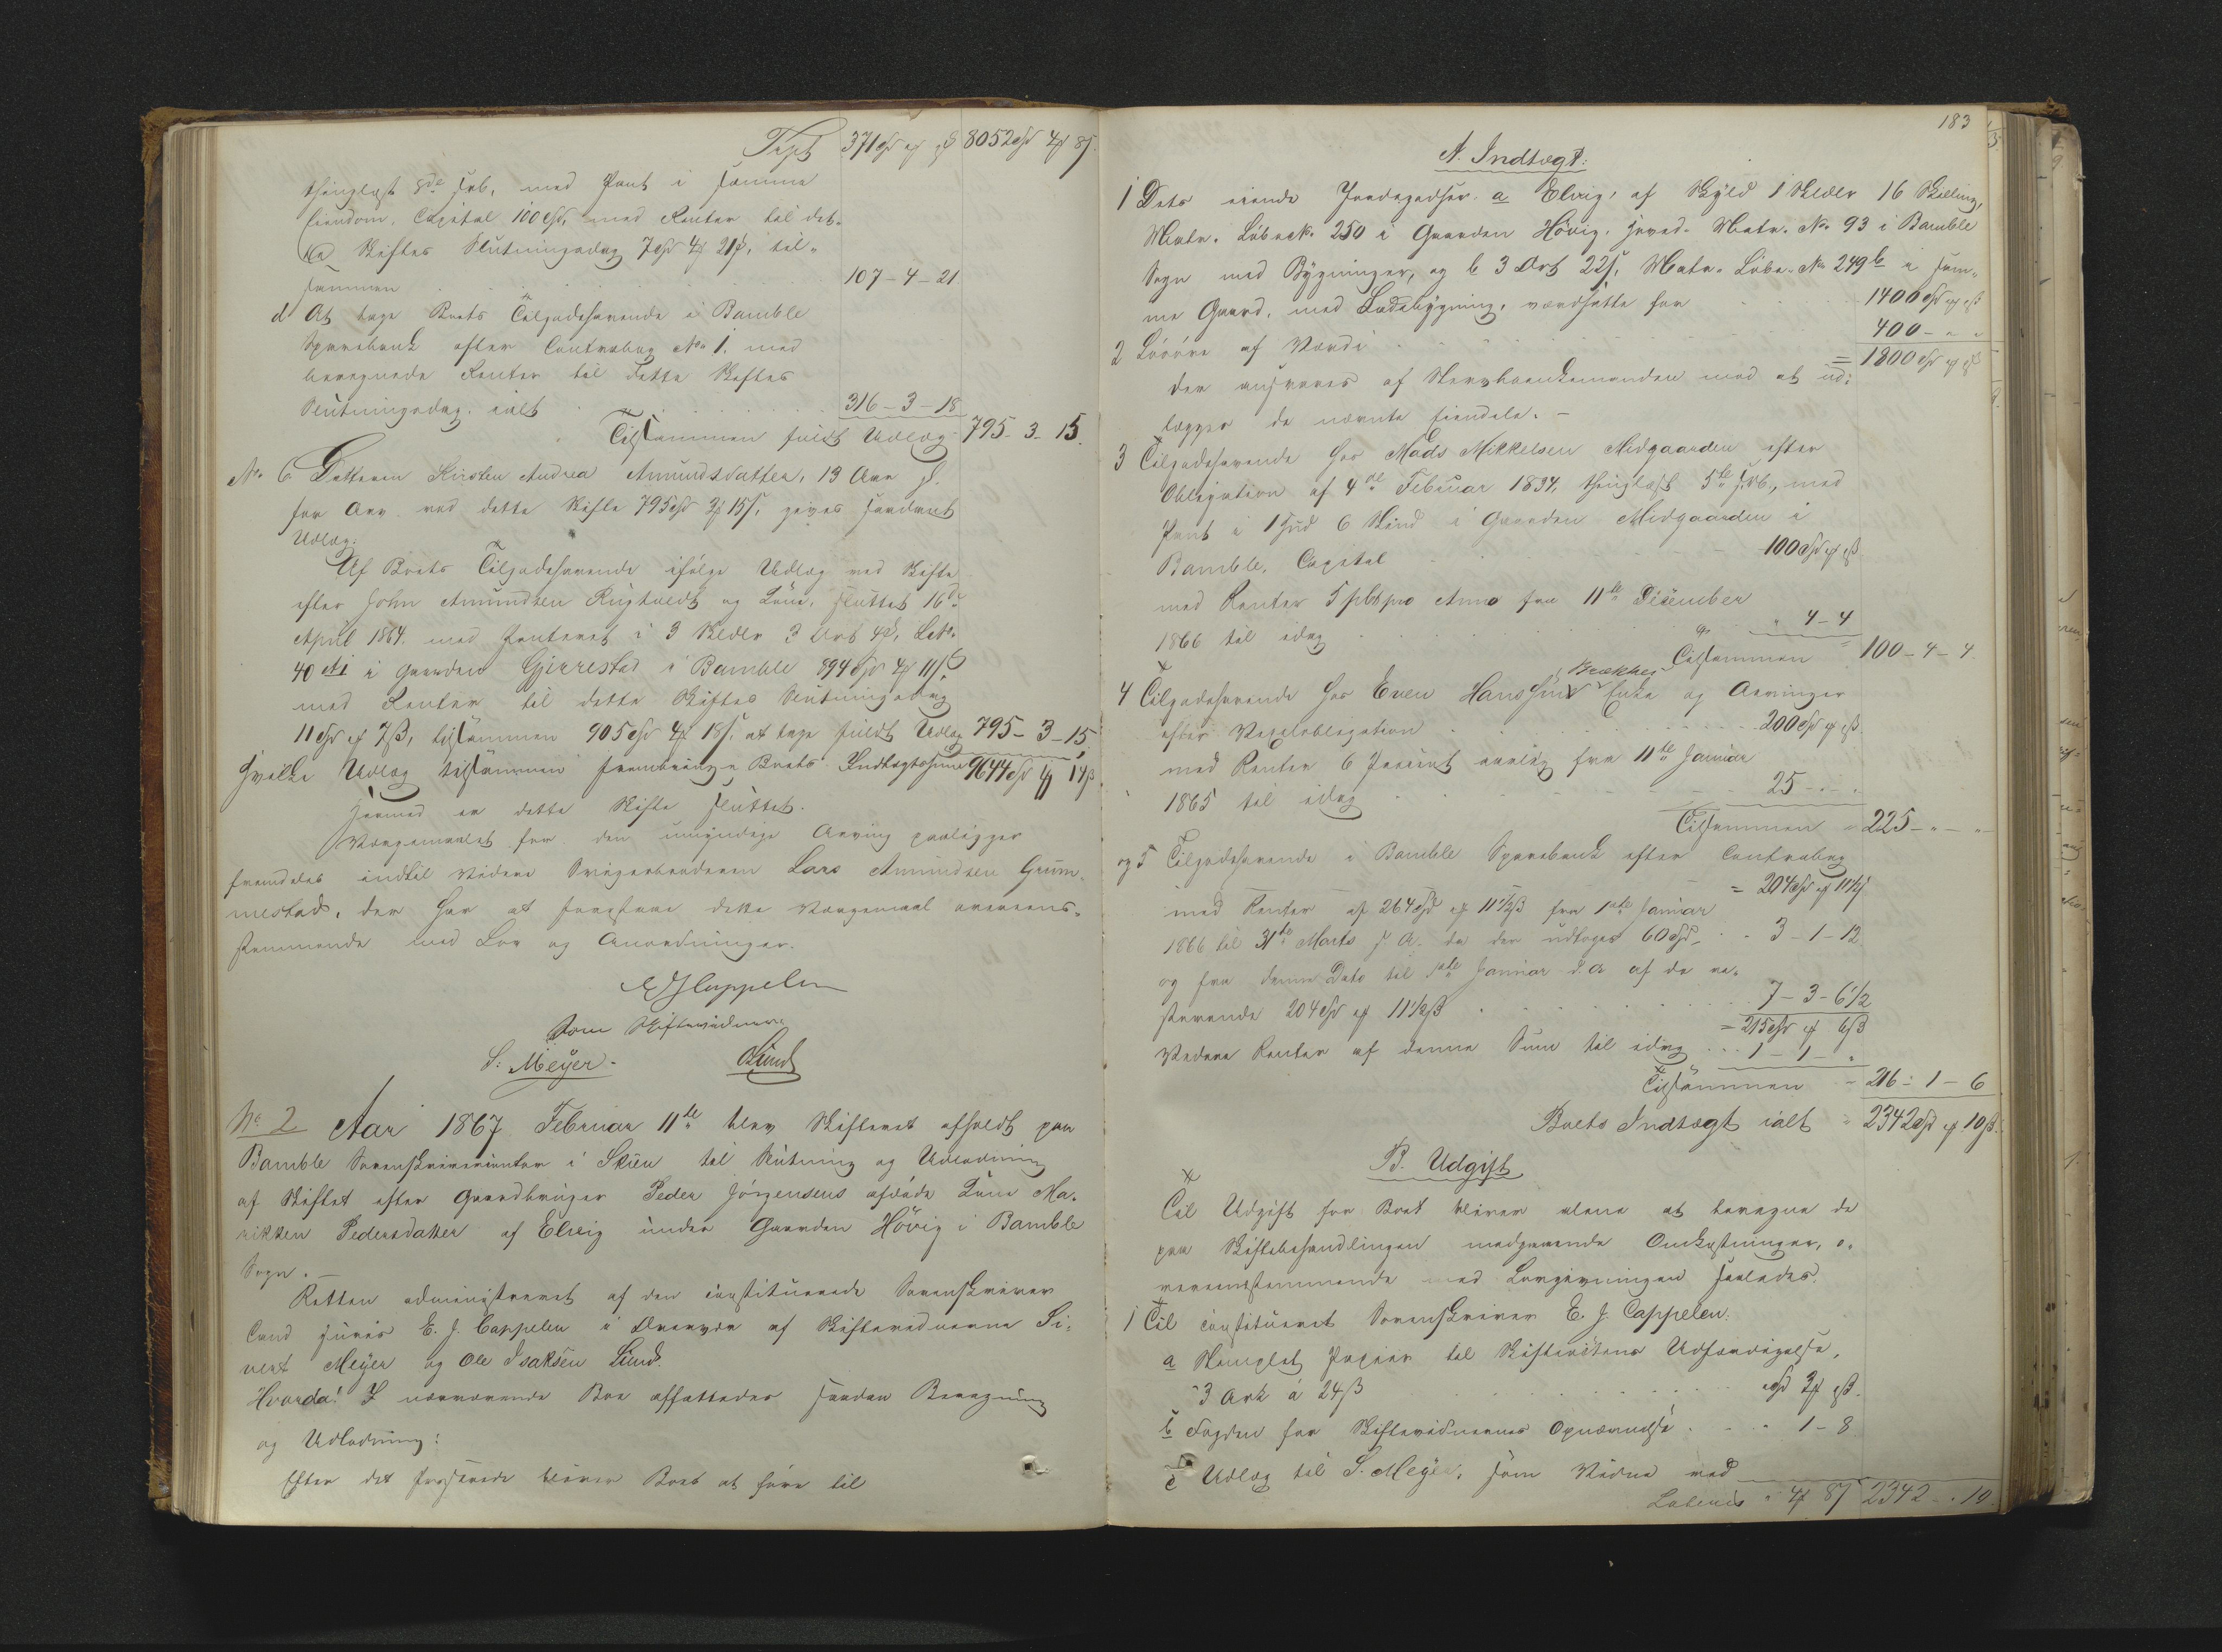 Tpt 371 Spd " ₰ " ß 8052 Spd 4 ₰ 8 ß
thinglæst 8de Feb. med Pant i samme
Eiendom. Capital 100 Spd, med Renter til det-
te Skiftes Slutningsdag 7 Spd 4 ₰ 21 ß, til-
sammen 107 - 4 - 21
d At tage Boets Tilgodehavende i Bamble
Sparebank efter Contrabog No 1. med
beregnede Renter til dette Skiftes
Slutningsdag, ialt 316 - 3 - 18
Tilsammen fuldt Udlæg 795 - 3 - 15.
No 6 Datteren Kirsten Andrea Amundsdatter, 13 Aar gl.
for Arv ved dette Skifte 795 Spd 3 ₰ 15 ß, gives saadant
Udlæg:
Af Boets Tilgodehavende ifølge Udlæg ved Skifte
efter John Amundsen Rugtvedt og Kone, sluttet 16de
April 1864. med Panteret i 3 Skldlr 3 Ort 4 ß, Lbr.
40 i Gaarden Gjerrestad i Bamble 894 Spd 4 ₰ 11 ß
med Renter til dette Skiftes Slutningsdag
11 Spd " ₰ 7 ß, tilsammen 905 Spd 4 ₰ 18 ß, at tage fuldt Udlæg 795 - 3 - 15,
hvilke Udlæg tilsammen frembringe Boets Indtægtssum 9644 Spd 1 ₰ 14 ß
Hermed er dette Skifte sluttet.
Værgemaalet for den umyndige Arving paaligger
fremdeles indtil Videre Svigerbroderen Lars Amundsen Grum-
mestad, der har at forestaae dette Værgemaal overeens-
stemmende med Lov og Anordninger.
E J Cappelen
Som Skiftevidner
S. Meyer. O Lund
No 2 Aar 1867 Februar 11te blev Skifteret afholdt paa
Bamble Sorenskrivercontor i Skien til Slutning og Udlodning
af Skiftet efter Gaardbruger Peder Jörgensens afdøde Kone Ma-
rikken Pedersdatter af Elvig under Gaarden Hövig i Bamble
Sogn.
Retten administreret af den constituerede Sorenskriver
Cand juris E. J. Cappelen i Overvær af Skiftevidnerne Si-
vert Meyer og Ole Isaksen Lund.
Hvorda! I nærværende Boe affattedes saadan Beregning
og Udlodning:
Efter det Passerede bliver Boet at føre til
183
A. Indtægt:
1 Dets eiende Jordegodser. a Elvig, af Skyld 1 Skldlr 16 Skilling,
Matr. Löbenr. 250 i Gaarden Hövig, hoved-Matr. No 93 i Bamble
Sogn med Bygninger, og b 3 Ort 22 ß, Matr. Löbe-No 249b i sam-
me Gaard, med Ladebygning, værdsatte for 1400 Spd " ₰ " ß
2 Lösöre af Værdi 400 - " - "
= 1800 Spd " ₰ " ß
der ansvares af Stervboenkemanden mod at ud-
lægges de nævnte Eiendele. -
3 Tilgodehavende hos Mads Mikkelsen Midgaarden efter
Obligation af 4de Februar 1834, thinglæst 5te Feb., med
Pant i 1 Hud 6 Skind i Gaarden Midgaarden i
Bamble, Capital 100 Spd " ₰ " ß
med Renter 5 pCt pro Anno fra 11te December
1866 til idag " 4 - 4
Tilsammen = 100 - 4 - 4
4 Tilgodehavende hos Even Hanssöns Brækkes Enke og Arvinger
efter Vexelobligation 200 Spd " ₰ " ß
med Renter 6 Procent aarlig fra 11te Januar
1865 til idag 25 - " - "
Tilsammen = 225 - " - "
og 5 Tilgodehavende i Bamble Sparebank efter Contrabog
= 204 Spd " ₰ 11½ ß
med Renter af 264 Spd " ₰ 11½ ß fra 1ste Januar
1866 til 31te Marts s. A. da der udtoges 60 Spd 3 - 1 - 12
og fra denne Dato til 1ste Januar d. A af de re-
sterende 204 Spd " ₰ 11½ ß 7 - 3 - 6½
= 215 Spd " ₰ 6 ß
Videre Renter af denne Sum til idag 1 - 1 - "
Tilsammen = 216 - 1 - 6
Boets Indtægt ialt = 2342 Spd " ₰ 10 ß.
B. Udgift
Til Udgift for Boet bliver alene at beregne de
paa Skiftebehandlingen medgaaende Omkostninger, o-
vereensstemmende med Lovgivningen saaledes:
1 Til constitueret Sorenskriver E. J. Cappelen:
a Stemplet Papiir til Skifteactens Udfærdigelse,
3 Ark á 24 ß " Spd 3 ₰ " ß
b Fogden for Skiftevidnernes Opnævnelse " 1 - 8
c Udlæg til S. Meyer, som Vidne ved
Lateris " 4 ₰ 8 ß 2342 - " 10